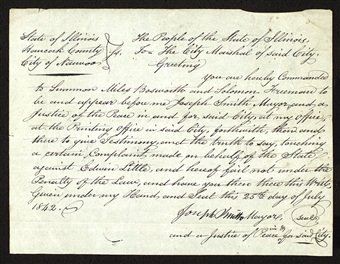 State of Illinois
Hancock County } ss.
City of Nauvoo
The People of the State of Illinois,
To The City Marshal of said City.
Greeting
You are hereby Commanded
to Summon Miles Bosworth and Solomon Freeman to
be and appear before me Joseph Smith, Mayor, and, a
Justice of the Peace in and for said City, at my office,
at the Printing Office in said City, forthwith, then and
there to give Testimony, and the truth to say, touching
a certain Complaint, made on behalf of the State
against Edwin Little, and hereof fail not under the
Penalty of the Law, and have you then there this Writ.
Given under my Hand, and Seal this 25th day of July
1842.
Joseph Smith Mayor, Seal
and a Justice of Peace in & for said City.